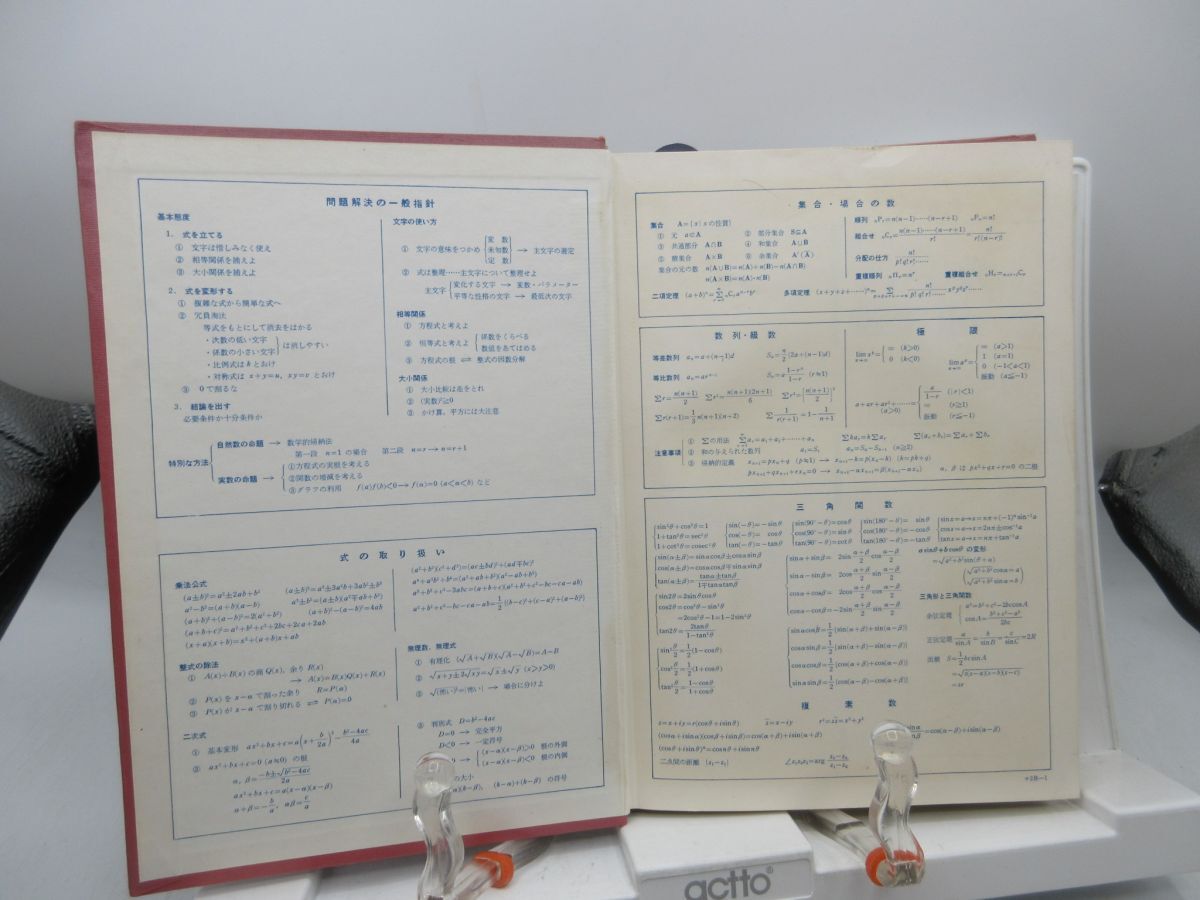 問題解決の一般指針
基本態度
1. 式を立てる
① 文字は惜しみなく使え
② 相等関係を捕えよ
③ 大小関係を捕えよ
2. 式を変形する
① 複雑な式から簡単な式へ
② 冗員淘汰
等式をもとにして消去をはかる
・次数の低い文字
・係数の小さい文字 は消しやすい
・比例式は k とおけ
・対称式は x+y=u, xy=v とおけ
③ 0で割るな
3. 結論を出す
必要条件か十分条件か
文字の使い方
① 文字の意味をつかめ 変数 未知数 定数 → 主文字の選定
② 式は整理……主文字について整理せよ
主文字 変化する文字 → 変数・パラメーター
平等な性格の文字 → 最低次の文字
相等関係
① 方程式と考えよ
② 恒等式と考えよ 係数をくらべる 数値をあてはめる
③ 方程式の根 ⇌ 整式の因数分解
大小関係
① 大小比較は差をとれ
② (実数)²≧0
③ かけ算,平方には大注意
特別な方法
自然数の命題 → 数学的帰納法
第一段 n=1 の場合 第二段 n=r → n=r+1
実数の命題 → ①方程式の実根を考える
②関数の増減を考える
③グラフの利用 f(a)f(b)<0→f(α)=0 (a<α<b) など
式の取り扱い
乗法公式
(a±b)²=a²±2ab+b² (a±b)³=a³±3a²b+3ab²±b³
a²−b²=(a+b)(a−b) a³±b³=(a±b)(a²∓ab+b²)
(a+b)²+(a−b)²=2(a²+b²) (a+b)²−(a−b)²=4ab
(a+b+c)²=a²+b²+c²+2bc+2ca+2ab
(x+a)(x+b)=x²+(a+b)x+ab
(a²+b²)(c²+d²)=(ac±bd)²+(ad∓bc)²
a⁴+a²b²+b⁴=(a²+ab+b²)(a²−ab+b²)
a³+b³+c³−3abc=(a+b+c)(a²+b²+c²−bc−ca−ab)
a²+b²+c²−bc−ca−ab=1/2{(b−c)²+(c−a)²+(a−b)²}
整式の除法
① A(x)÷B(x) の商 Q(x), 余り R(x)
→ A(x)=B(x)Q(x)+R(x)
② P(x) を x−α で割った余り R=P(α)
③ P(x) が x−α で割り切れる ⇌ P(α)=0
無理数,無理式
① 有理化 (√A+√B)(√A−√B)=A−B
② √x+y±2√xy=√x±√y (x>y>0)
③ → 場合に分けよ
二次式
① 基本変形 ax²+bx+c=a(x+b/2a)²−b²−4ac/4a
② ax²+bx+c=0 (a≠0) の根
α, β=−b±√b²−4ac/2a
ax²+bx+c=a(x−α)(x−β)
α+β=−b/a, αβ=c/a
③ 判別式 D=b²−4ac
D=0 → 完全平方
D<0 → 一定符号
(x−α)(x−β)>0 根の外側
(x−α)(x−β)<0 根の内側
の大小
(k−β), (k−α)+(k−β) の符号
集合・場合の数
集合 A={x|xの性質}
① 元 a∈A ② 部分集合 S⊆A
③ 共通部分 A∩B ④ 和集合 A∪B
⑤ 積集合 A×B ⑥ 余集合 A′(Ā)
集合の元の数 n(A∪B)=n(A)+n(B)−n(A∩B)
n(A×B)=n(A)·n(B)
順列 ₙPᵣ=n(n−1)……(n−r+1) ₙPₙ=n!
組合せ ₙCᵣ=n(n−1)……(n−r+1)/r!=n!/r!(n−r)!
分配の仕方 n!/p!q!r!……
重複順列 ₙΠᵣ=nʳ 重複組合せ ₙHᵣ=ₙ₊ᵣ₋₁Cᵣ
二項定理 (a+b)ⁿ=Σ ₙCᵣaⁿ⁻ʳbʳ 多項定理 (x+y+z+……)ⁿ=Σ n!/p!q!r!…… xᵖy^qzʳ……
数列・級数
等差数列 aₙ=a+(n−1)d Sₙ=n/2{2a+(n−1)d}
等比数列 aₙ=arⁿ⁻¹ Sₙ=a 1−rⁿ/1−r (r≠1)
Σr=n(n+1)/2 Σr²=n(n+1)(2n+1)/6 Σr³=[n(n+1)/2]²
Σr(r+1)=1/3 n(n+1)(n+2) Σ1/r(r+1)=1−1/n+1
極限
lim nᵏ= ∞ (k>0) 0 (k<0)
lim aⁿ= ∞ (a>1) 1 (a=1) 0 (−1<a<1) 振動 (a≦−1)
a+ar+ar²+……= (a>0) a/1−r (|r|<1) ∞ (r≧1) 振動 (r≦−1)
注意事項
① Σの用法 Σaᵣ=a₁+a₂+……+aₙ Σkaᵣ=kΣaᵣ Σ(aᵣ+bᵣ)=Σaᵣ+Σbᵣ
② 和の与えられた数列 a₁=S₁ aₙ=Sₙ−Sₙ₋₁ (n≧2)
③ 帰納的定義 xₙ₊₁=pxₙ+q (p≠1) → xₙ₊₁−k=p(xₙ−k) (k=pk+q)
pxₙ₊₂+qxₙ₊₁+rxₙ=0 → xₙ₊₂−αxₙ₊₁=β(xₙ₊₁−αxₙ) α, β は px²+qx+r=0 の二根
三角関数
sin²θ+cos²θ=1
1+tan²θ=sec²θ
1+cot²θ=cosec²θ
sin(−θ)=−sinθ
cos(−θ)=cosθ
tan(−θ)=−tanθ
sin(90°−θ)=cosθ
cos(90°−θ)=sinθ
tan(90°−θ)=cotθ
sin(180°−θ)=sinθ
cos(180°−θ)=−cosθ
tan(180°−θ)=−tanθ
sinx=a→x=nπ+(−1)ⁿsin⁻¹a
cosx=a→x=2nπ±cos⁻¹a
tanx=a→x=nπ+tan⁻¹a
sin(α±β)=sinαcosβ±cosαsinβ
cos(α±β)=cosαcosβ∓sinαsinβ
tan(α±β)=tanα±tanβ/1∓tanαtanβ
sin2θ=2sinθcosθ
cos2θ=cos²θ−sin²θ
=2cos²θ−1=1−2sin²θ
tan2θ=2tanθ/1−tan²θ
sin²θ/2=1/2(1−cosθ)
cos²θ/2=1/2(1+cosθ)
tan²θ/2=1−cosθ/1+cosθ
sinα+sinβ=2sinα+β/2cosα−β/2
sinα−sinβ=2cosα+β/2sinα−β/2
cosα+cosβ=2cosα+β/2cosα−β/2
cosα−cosβ=−2sinα+β/2sinα−β/2
sinαcosβ=1/2{sin(α+β)+sin(α−β)}
cosαsinβ=1/2{sin(α+β)−sin(α−β)}
cosαcosβ=1/2{cos(α+β)+cos(α−β)}
sinαsinβ=−1/2{cos(α+β)−cos(α−β)}
asinθ+bcosθ の変形
=√a²+b²sin(θ+α)
√a²+b²cosα=a
√a²+b²sinα=b
三角形と三角関数
余弦定理 a²=b²+c²−2bccosA
cosA=b²+c²−a²/2bc
正弦定理 a/sinA=b/sinB=c/sinC=2R
面積 S=1/2bcsinA
=√s(s−a)(s−b)(s−c)
=sr
複素数
z=x+iy=r(cosθ+isinθ) z̄=x−iy r²=zz̄=x²+y²
(cosα+isinα)(cosβ+isinβ)=cos(α+β)+isin(α+β)
=cos(α−β)+isin(α−β)
(cosθ+isinθ)ⁿ=cosnθ+isinnθ
二点間の距離 |z₁−z₂|
actto